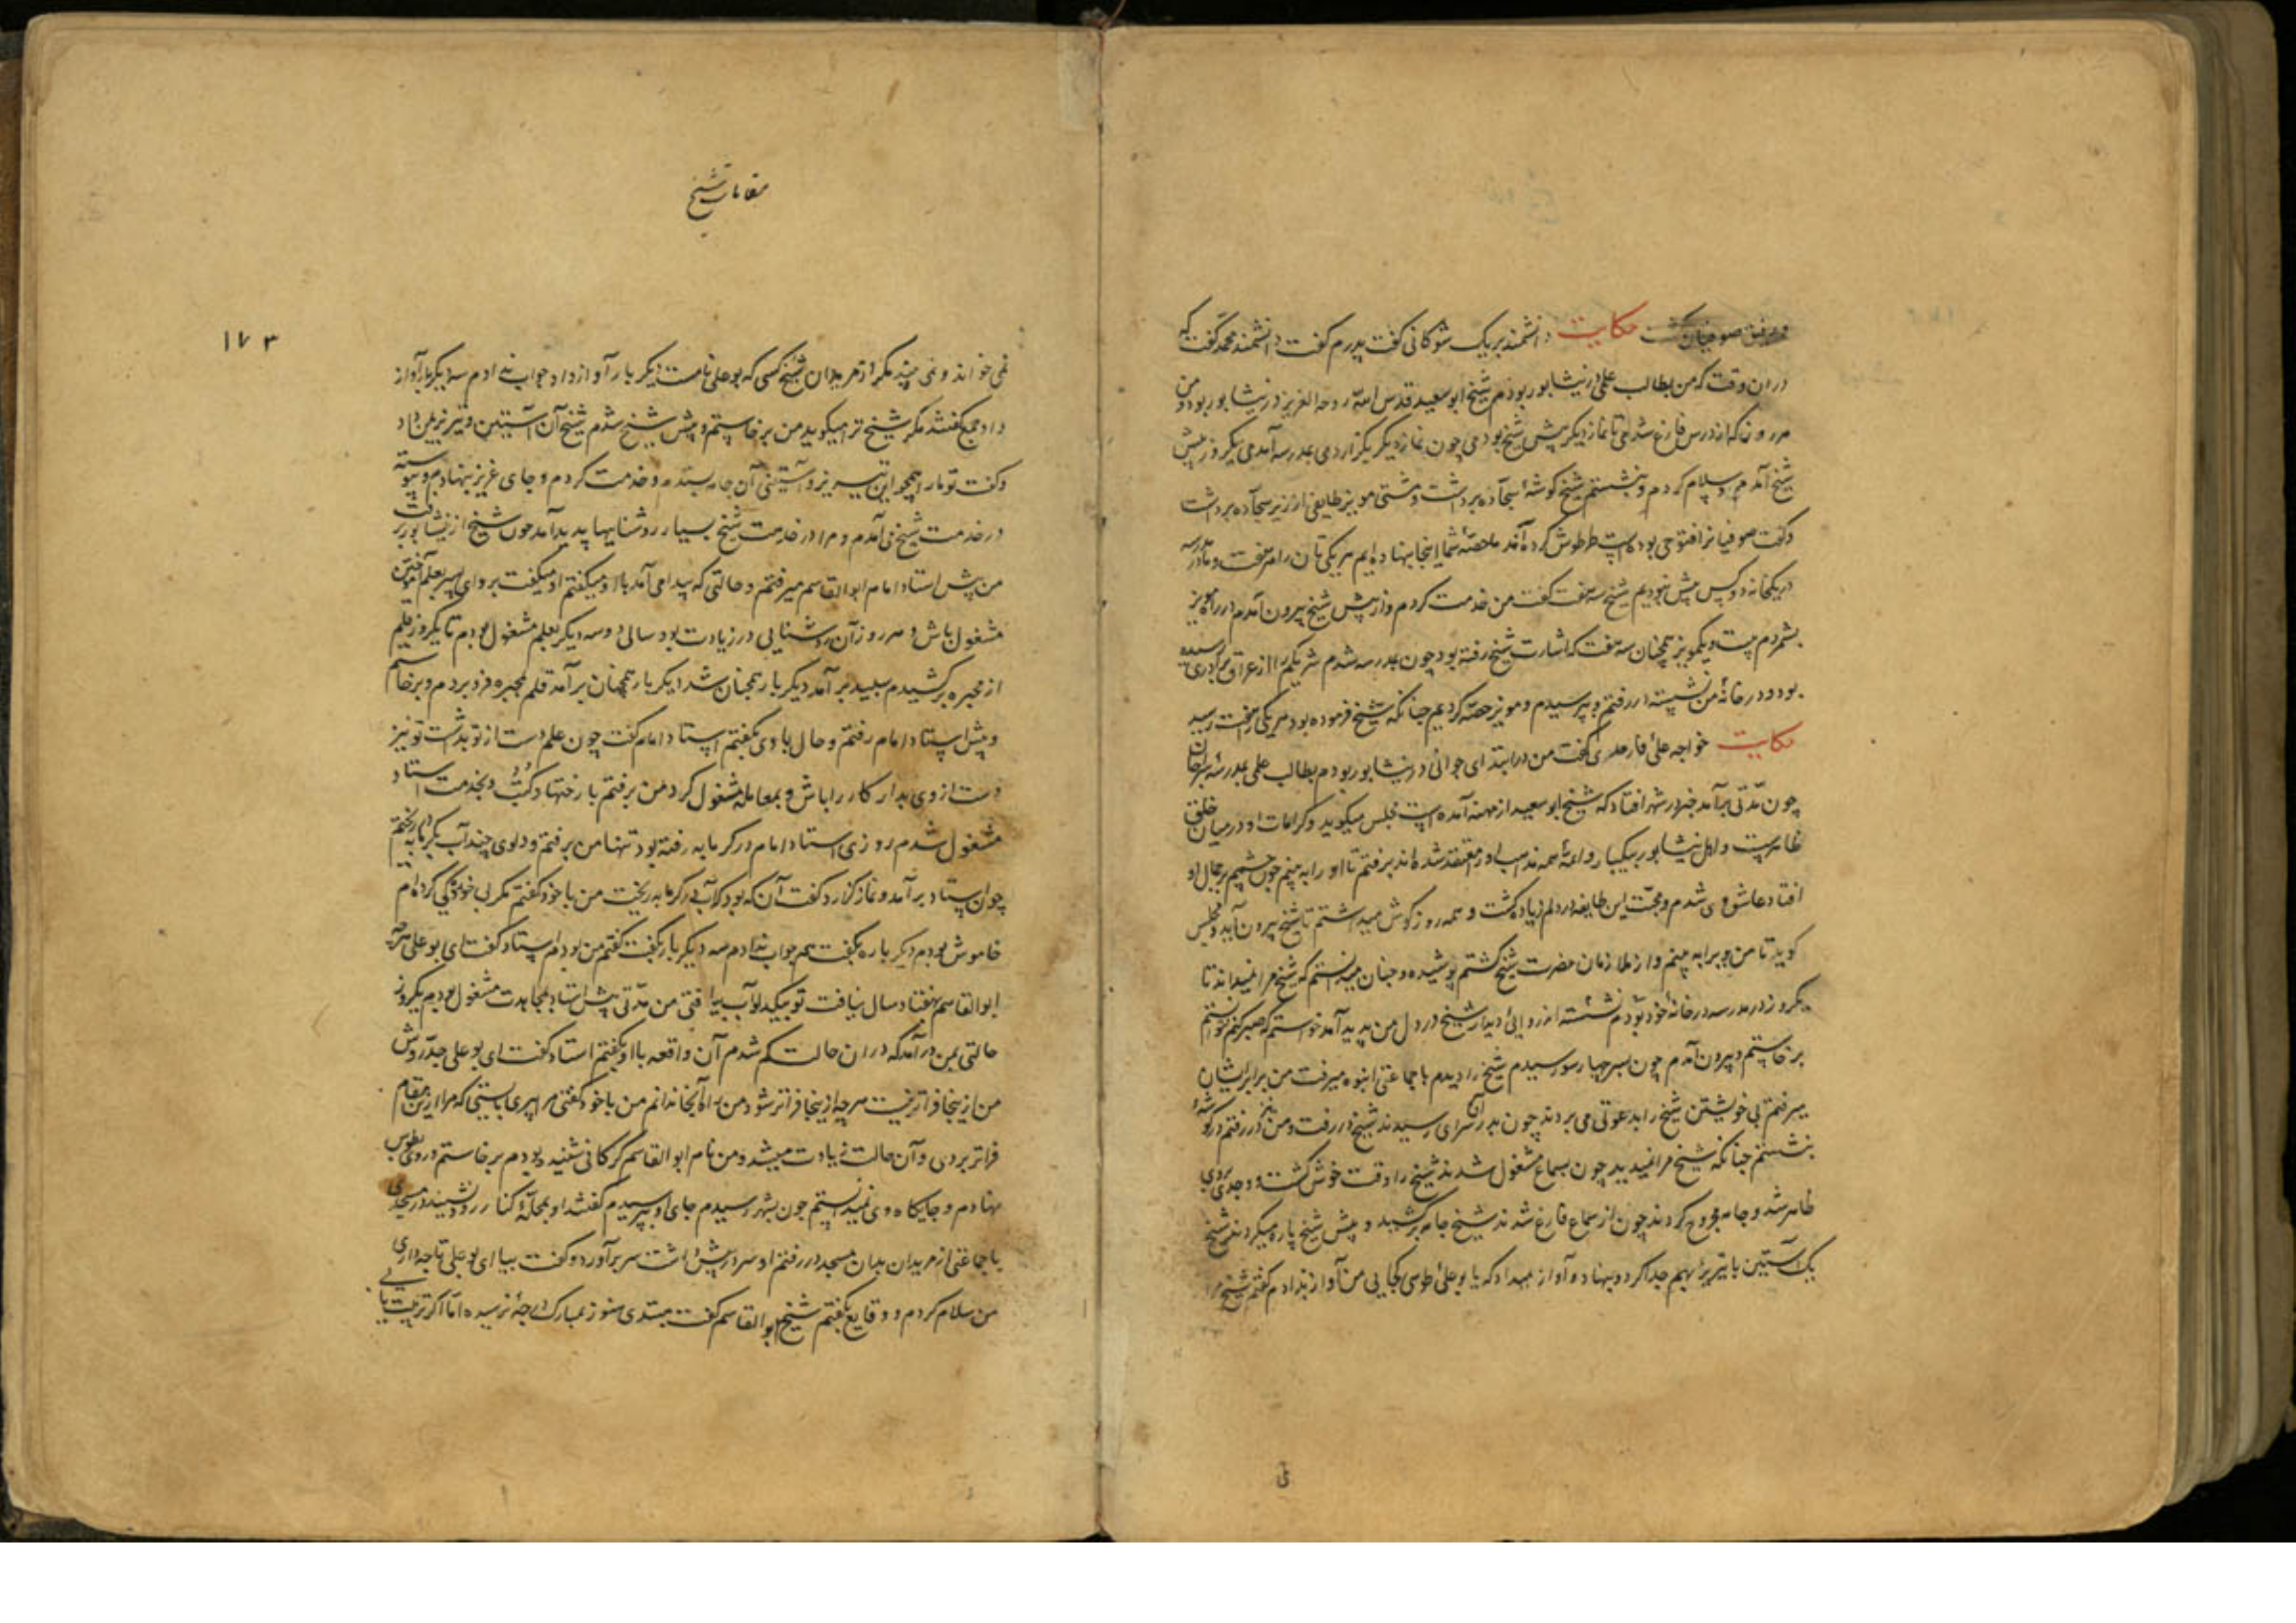 و مرفق صوفیان گشت حکایت دانشمند بریک شوکانی گفت پدرم گفت دانشمند محمد گفت که
در ان وقت که من بطالب علمی در نیشابور بودم شیخ ابو سعید قدس الله روحه العزیز در نیشابور بود و من
هر روز که از درس فارغ شدمی تا نماز دیگر پیش شیخ بودمی چون نماز دیگر بگزاردمی بمدرسه آمدمی یکروز پیش
شیخ آمدم و سلام کردم و بنشستم شیخ گوشهٔ سجاده برداشت و مشتی مویز طایفی از زیر سجاده برداشت
و گفت صوفیانرا فتوحی بود کرده آمد ما حصهٔ شما اینجا بنهاده ایم هر یکی تان را هفت و ما در مدرسه
در یکخانه دو کس بیش نبودیم شیخ سه هفت گفت من خدمت کردم و از پیش شیخ بیرون آمدم در راه مویز
بشمردم بیست و یک مویز همچنان سه هفت که اشارت شیخ رفته بود چون بمدرسه شدم شریکم را از عراق برادری رسیده
بود و در خانهٔ من نشسته در رفتم و بپرسیدم و مویز حصه کردیم چنانکه شیخ فرموده بود هر یکی را هفت رسید
حکایت خواجه علی فارمدی گفت من در ابتدای جوانی در نیشابور بودم بطالب علمی بمدرسهٔ سراجان
چون مدتی برآمد خبر در شهر افتاد که شیخ ابو سعید از مهنه آمده است مجلس میگوید و کرامات او در میان خلق
ظاهرست و اهل نیشابور بیکبار و ائمهٔ همه مذاهب او را معتقد شده اند برفتم تا او را به بینم چون چشمم بر جمال او
افتاد عاشق وی شدم و محبت این طایفه در دلم زیاده گشت و همه روز گوش میداشتم تا شیخ بیرون آید و مجلس
گوید تا من ویرا به بینم و از ملازمان حضرت شیخ گشتم پوشیده و چنان میدانستم که شیخ مرا نمیداند تا
یکروز در مدرسه در خانهٔ خود بودم نشسته ارزوی دیدار شیخ در دل من پدید آمد خواستم که صبر کنم نتوانستم
برخاستم و بیرون آمدم چون بسر چهارسو رسیدم شیخ را دیدم با جماعتی انبوه میرفت من برابر ایشان
میرفتم بی خویشتن شیخ را بدعوتی می بردند چون بدر آن سرای رسیدند شیخ در رفت و من نیز در رفتم در گوشهٔ
بنشستم چنانکه شیخ مرا نمیدید چون بسماع مشغول شدند شیخ را وقت خوش گشت و وجدی بروی
ظاهر شد و جامه مجروح کردند چون از سماع فارغ شدند شیخ جامه برکشید و پیش شیخ پاره میکردند شیخ
یک آستین با تیریز بهم جدا کرد و بنهاد و آواز میداد که یا بوعلی طوسی کجایی من آواز ندادم گفتم شیخ مرا
مقامات شیخ
۱۷۳
نمی خواند و نمی بیند مگر از مریدان شیخ کسی که بوعلی نامست دیگر بار آواز داد جواب ندادم سدیگر بار آواز
داد جمع گفتند مگر شیخ ترا میگوید من برخاستم و پیش شیخ شدم شیخ آن آستین و تیریز بمن داد
و گفت تو ما را همچو این تیریز و آستینی آن جامه بستدم و خدمت کردم و جای عزیز بنهادم و پیوسته
در خدمت شیخ می آمدم و مرا در خدمت شیخ بسیار روشنایها پدید آمد چون شیخ از نیشابور برفت
من پیش استاد امام ابو القاسم میرفتم و حالتی که پیدا می آمد با او میگفتم او میگفت برو ای پسر بعلم آموختن
مشغول باش و هر روز آن روشنایی در زیادت بود سالی دو سه دیگر بعلم مشغول بودم تا یکروز قلم
از محبره برکشیدم سپید برآمد دیگر بار همچنان شد دیگر بار همچنان برآمد قلم بمحبره فرو بردم و برخاستم
و پیش استاد امام رفتم و حال با وی بگفتم استاد امام گفت چون علم دست از تو بداشت تو نیز
دست از وی بدار کار را باش و بمعامله مشغول گرد من برفتم با رختها و کتب و بخدمت استاد
مشغول شدم روزی استاد امام در گرمابه رفته بود تنها من برفتم و دلوی چند آب بگرمابه ریختم
چون استاد برآمد و نماز گزارد گفت آن که بود که آب در گرمابه ریخت من با خود گفتم مگر بی خویشتنی کرده ام
خاموش بودم دیگر باره بگفت هم جواب ندادم سه دیگر بار بگفت گفتم من بودم استاد گفت ای بوعلی هرچه
ابو القاسم بهفتاد سال نیافت تو بیک دلو آب بیافتی من مدتی پیش استاد بمجاهدت مشغول بودم یکروز
حالتی بمن درآمد که در ان حالت گم شدم آن واقعه با او بگفتم استاد گفت ای بوعلی حد روش
من از ینجا فراتر نیست هرچه از ینجا فراتر شود من راه آنجا ندانم من با خود گفتمی مرا پیری بایستی که مرا ازین مقام
فراتر بردی و آن حالت زیادت میشد و من نام ابو القاسم گرکانی شنیده بودم برخاستم و روی بطوس
نهادم و جایگاه وی نمیدانستم چون بشهر رسیدم جای او بپرسیدم گفتند او بمحلهٔ کنار رود نشیند در مسجدی
با جماعتی از مریدان بدان مسجد در رفتم او سر در پیش داشت سر برآورد و گفت بیا ای بوعلی تا چه داری
من سلام کردم و وقایع بگفتم شیخ ابو القاسم گفت مبتدی هنوز مبارک درجهٔ نرسیده اما اگر تربیت یابی